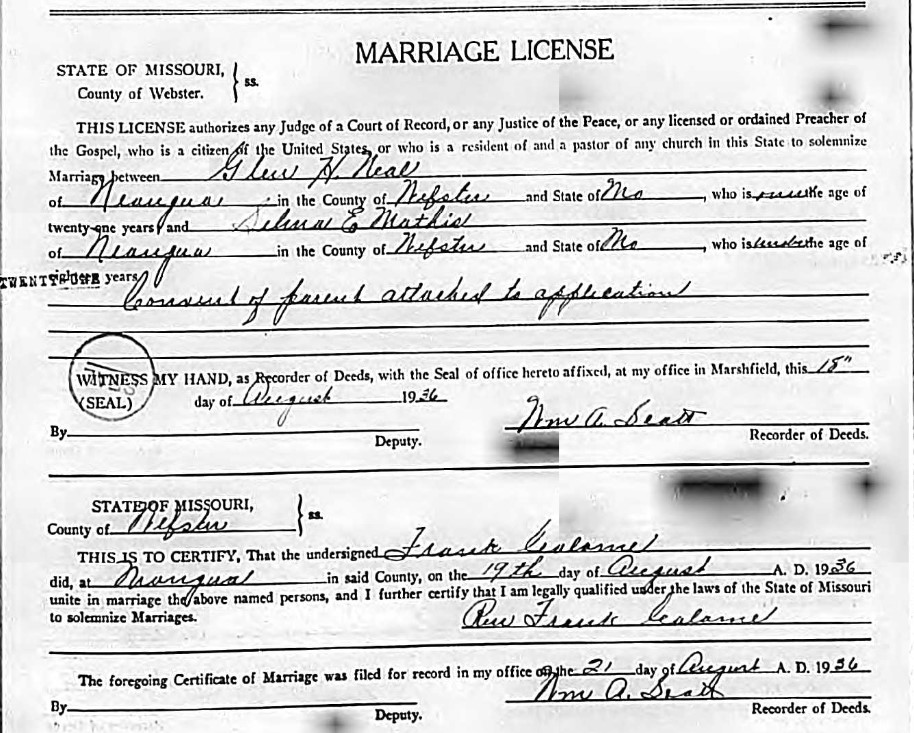 MARRIAGE LICENSE
STATE OF MISSOURI,
County of Webster. } ss.
THIS LICENSE authorizes any Judge of a Court of Record, or any Justice of the Peace, or any licensed or ordained Preacher of
the Gospel, who is a citizen of the United States, or who is a resident of and a pastor of any church in this State to solemnize
Marriage between Glen H. Neal
of Niangua in the County of Webster and State of Mo, who is the age of
twenty-one years, and Selma E Mathis
of Niangua in the County of Webster and State of Mo, who is under the age of
TWENTY-ONE years
Consent of parent attached to application
WITNESS MY HAND, as Recorder of Deeds, with the Seal of office hereto affixed, at my office in Marshfield, this 18"
(SEAL) day of August 1936
Wm A.
By Deputy. Recorder of Deeds.
STATE OF MISSOURI,
County of Webster } ss.
THIS IS TO CERTIFY, That the undersigned Frank
did, at in said County, on the 19th day of August A. D. 1936
unite in marriage the above named persons, and I further certify that I am legally qualified under the laws of the State of Missouri
to solemnize Marriages. Rev Frank
The foregoing Certificate of Marriage was filed for record in my office on the 21 day of August A. D. 1936
Wm A.
By Deputy. Recorder of Deeds.